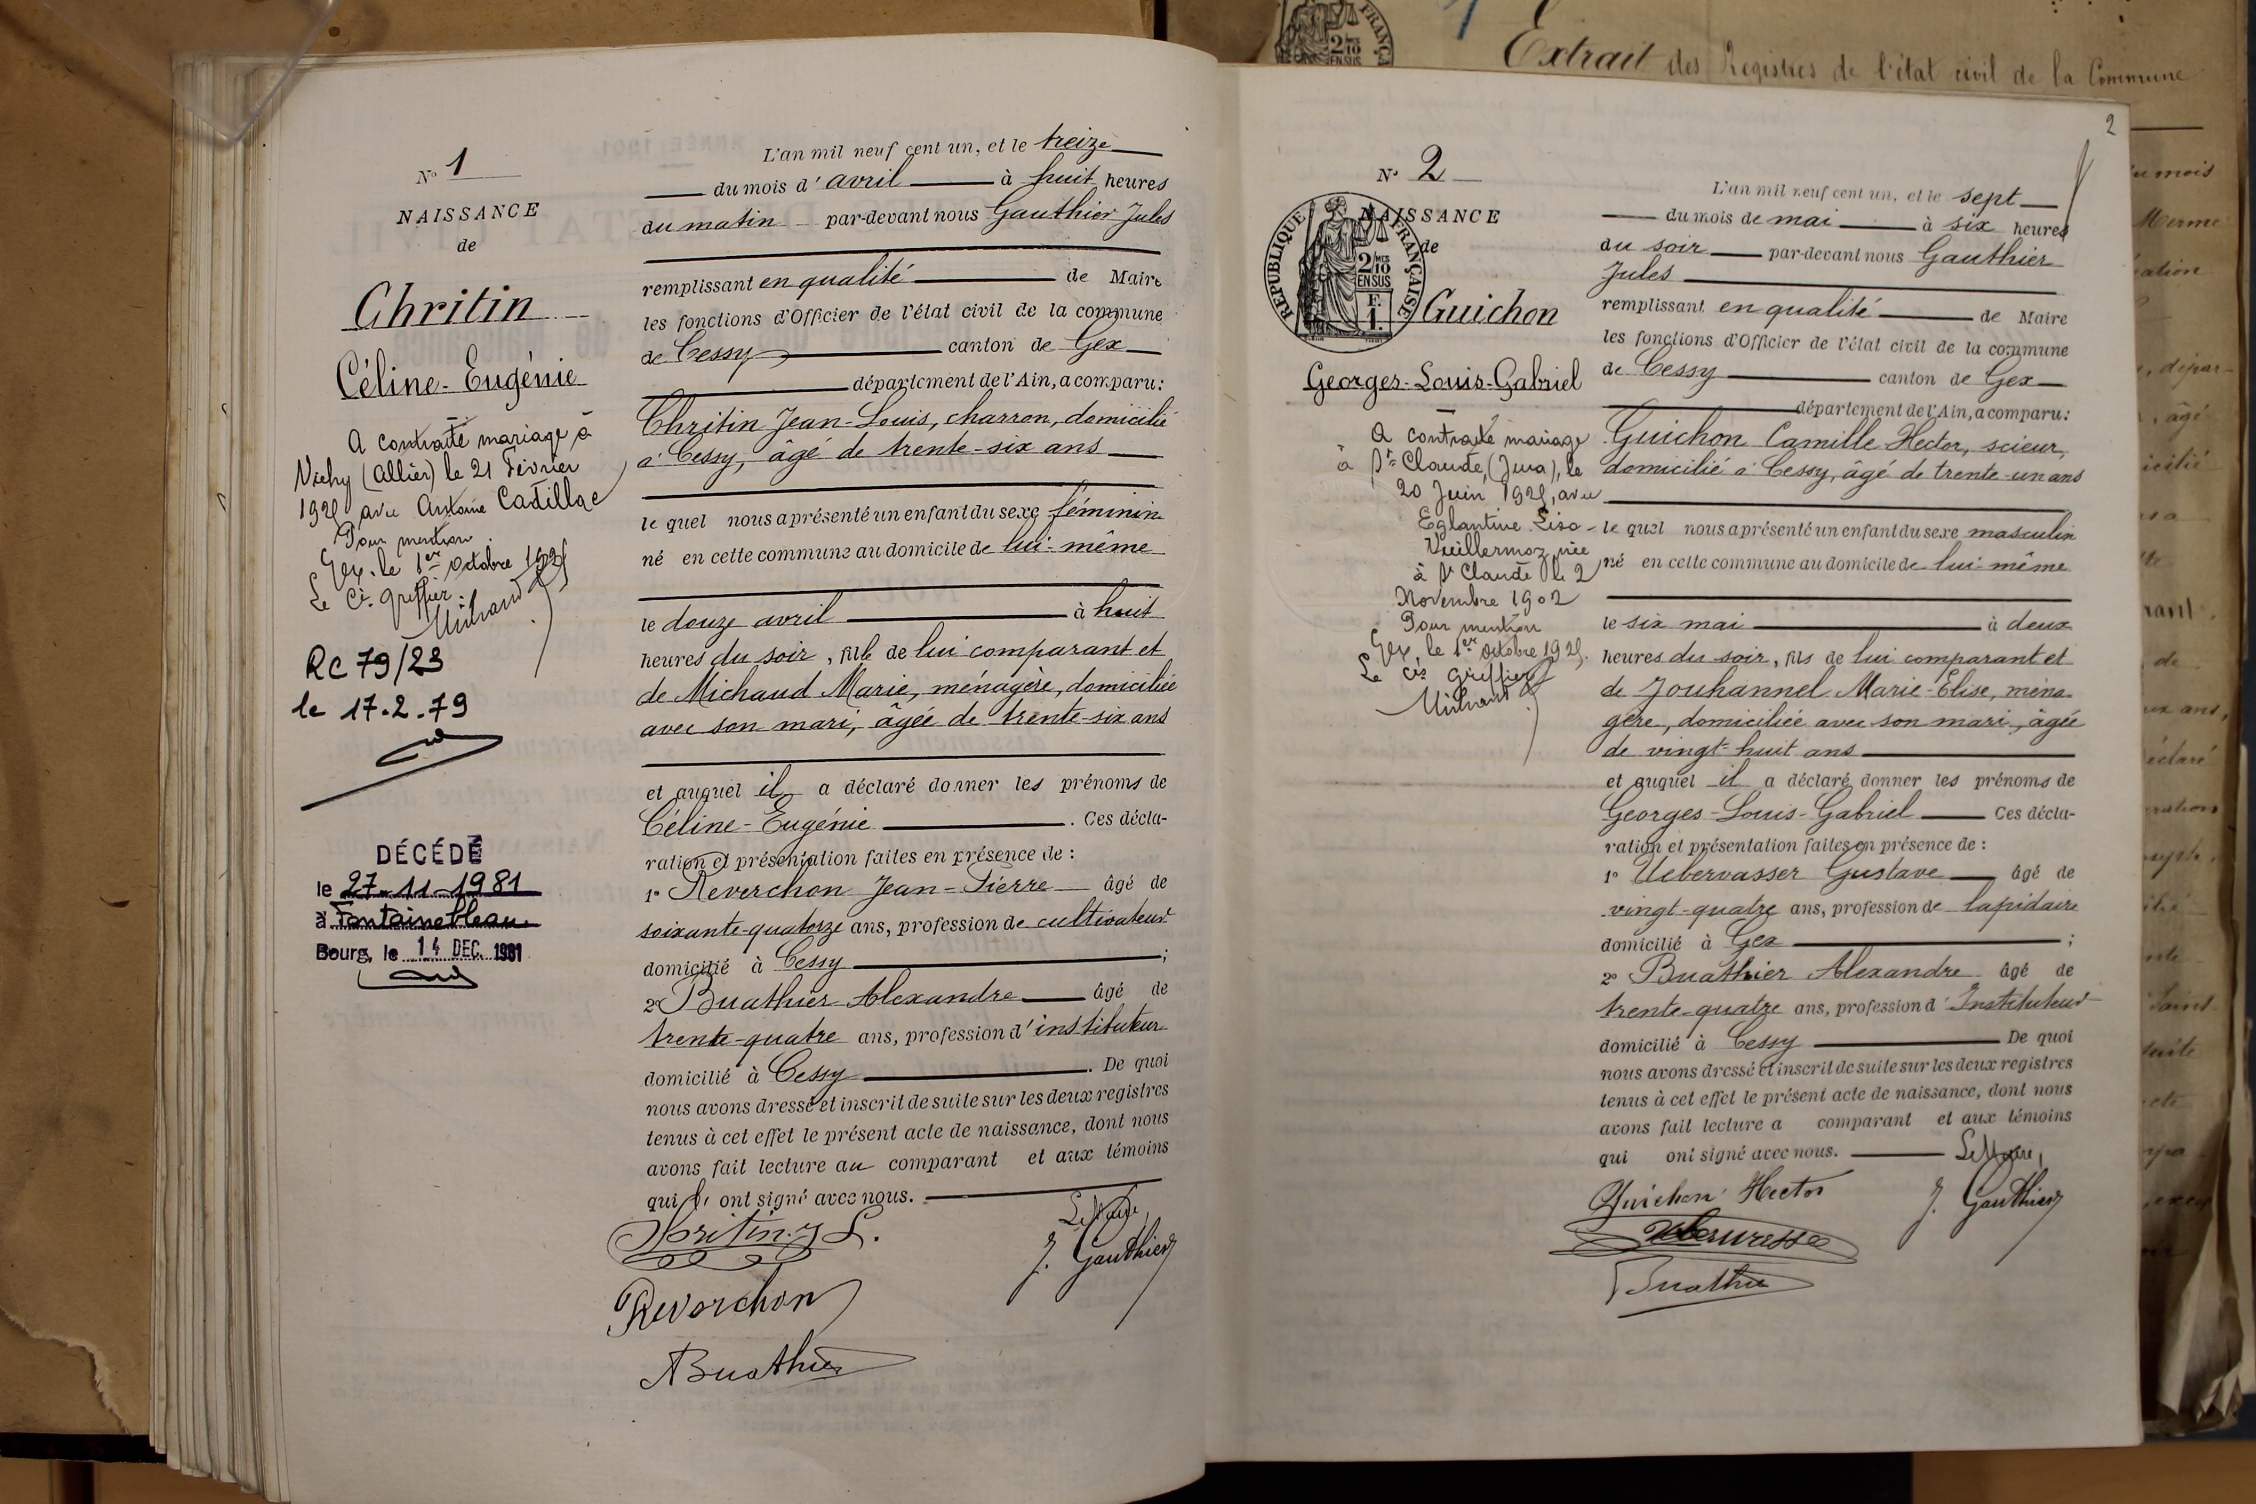 Extrait des Registres de l'état civil de la Commune
N° 1
NAISSANCE
de
Chritin
Céline-Eugénie
A contracté mariage à
Vichy (Allier) le 21 Février
avec Antoine Cadillac
Pour mention
Gex, le 1er Octobre
Le Cis Greffier
RC 79/23
le 17.2.79
DÉCÉDÉ
le 27-11-1981
à Fontainebleau
Bourg, le 14 DEC. 1981
L'an mil neuf cent un, et le treize
du mois d'avril à huit heures
du matin par-devant nous Gauthier Jules
remplissant en qualité de Maire
les fonctions d'Officier de l'état civil de la commune
de Cessy canton de Gex
département de l'Ain, a comparu:
Chritin Jean-Louis, charron, domicilié
à Cessy, âgé de trente-six ans
le quel nous a présenté un enfant du sexe féminin
né en cette commune au domicile de lui-même
le douze avril à huit
heures du soir, fille de lui comparant et
de Michaud Marie, ménagère, domiciliée
avec son mari, âgée de trente-six ans
et auquel il a déclaré donner les prénoms de
Céline-Eugénie. Ces décla-
ration et présentation faites en présence de:
1° Reverchon Jean-Pierre âgé de
soixante-quatorze ans, profession de cultivateur
domicilié à Cessy;
2° Buathier Alexandre âgé de
trente-quatre ans, profession d'instituteur
domicilié à Cessy. De quoi
nous avons dressé et inscrit de suite sur les deux registres
tenus à cet effet le présent acte de naissance, dont nous
avons fait lecture au comparant et aux témoins
qui ont signé avec nous.
Le Maire,
Chritin J L.
J. Gauthier
Reverchon
ABuathier
2
N° 2
NAISSANCE
de
RÉPUBLIQUE FRANÇAISE
2/10 MES
EN SUS
F.
1.
Guichon
Georges-Louis-Gabriel
A contracté mariage
à St Claude, (Jura), le
20 Juin, avec
Eglantine Lisa
Vuillermoz née
à St Claude le 2
Novembre 1902
Pour mention
Gex, le 1er Octobre
Le Cis Greffier
L'an mil neuf cent un, et le sept
du mois de mai à six heures
du soir par-devant nous Gauthier
Jules
remplissant en qualité de Maire
les fonctions d'Officier de l'état civil de la commune
de Cessy canton de Gex
département de l'Ain, a comparu:
Guichon Camille Hector, scieur,
domicilié à Cessy, âgé de trente-un ans
le quel nous a présenté un enfant du sexe masculin
né en cette commune au domicile de lui-même
le six mai à deux
heures du soir, fils de lui comparant et
de Jouhannel Marie-Elise, ména-
gère, domiciliée avec son mari, âgée
de vingt-huit ans
et auquel il a déclaré donner les prénoms de
Georges-Louis-Gabriel Ces décla-
ration et présentation faites en présence de:
1° Uebervasser Gustave âgé de
vingt-quatre ans, profession de lapidaire
domicilié à Gex;
2° Buathier Alexandre âgé de
trente-quatre ans, profession d'Instituteur
domicilié à Cessy De quoi
nous avons dressé et inscrit de suite sur les deux registres
tenus à cet effet le présent acte de naissance, dont nous
avons fait lecture a comparant et aux témoins
qui ont signé avec nous. Le Maire,
Guichon Hector
J. Gauthier
Buathier